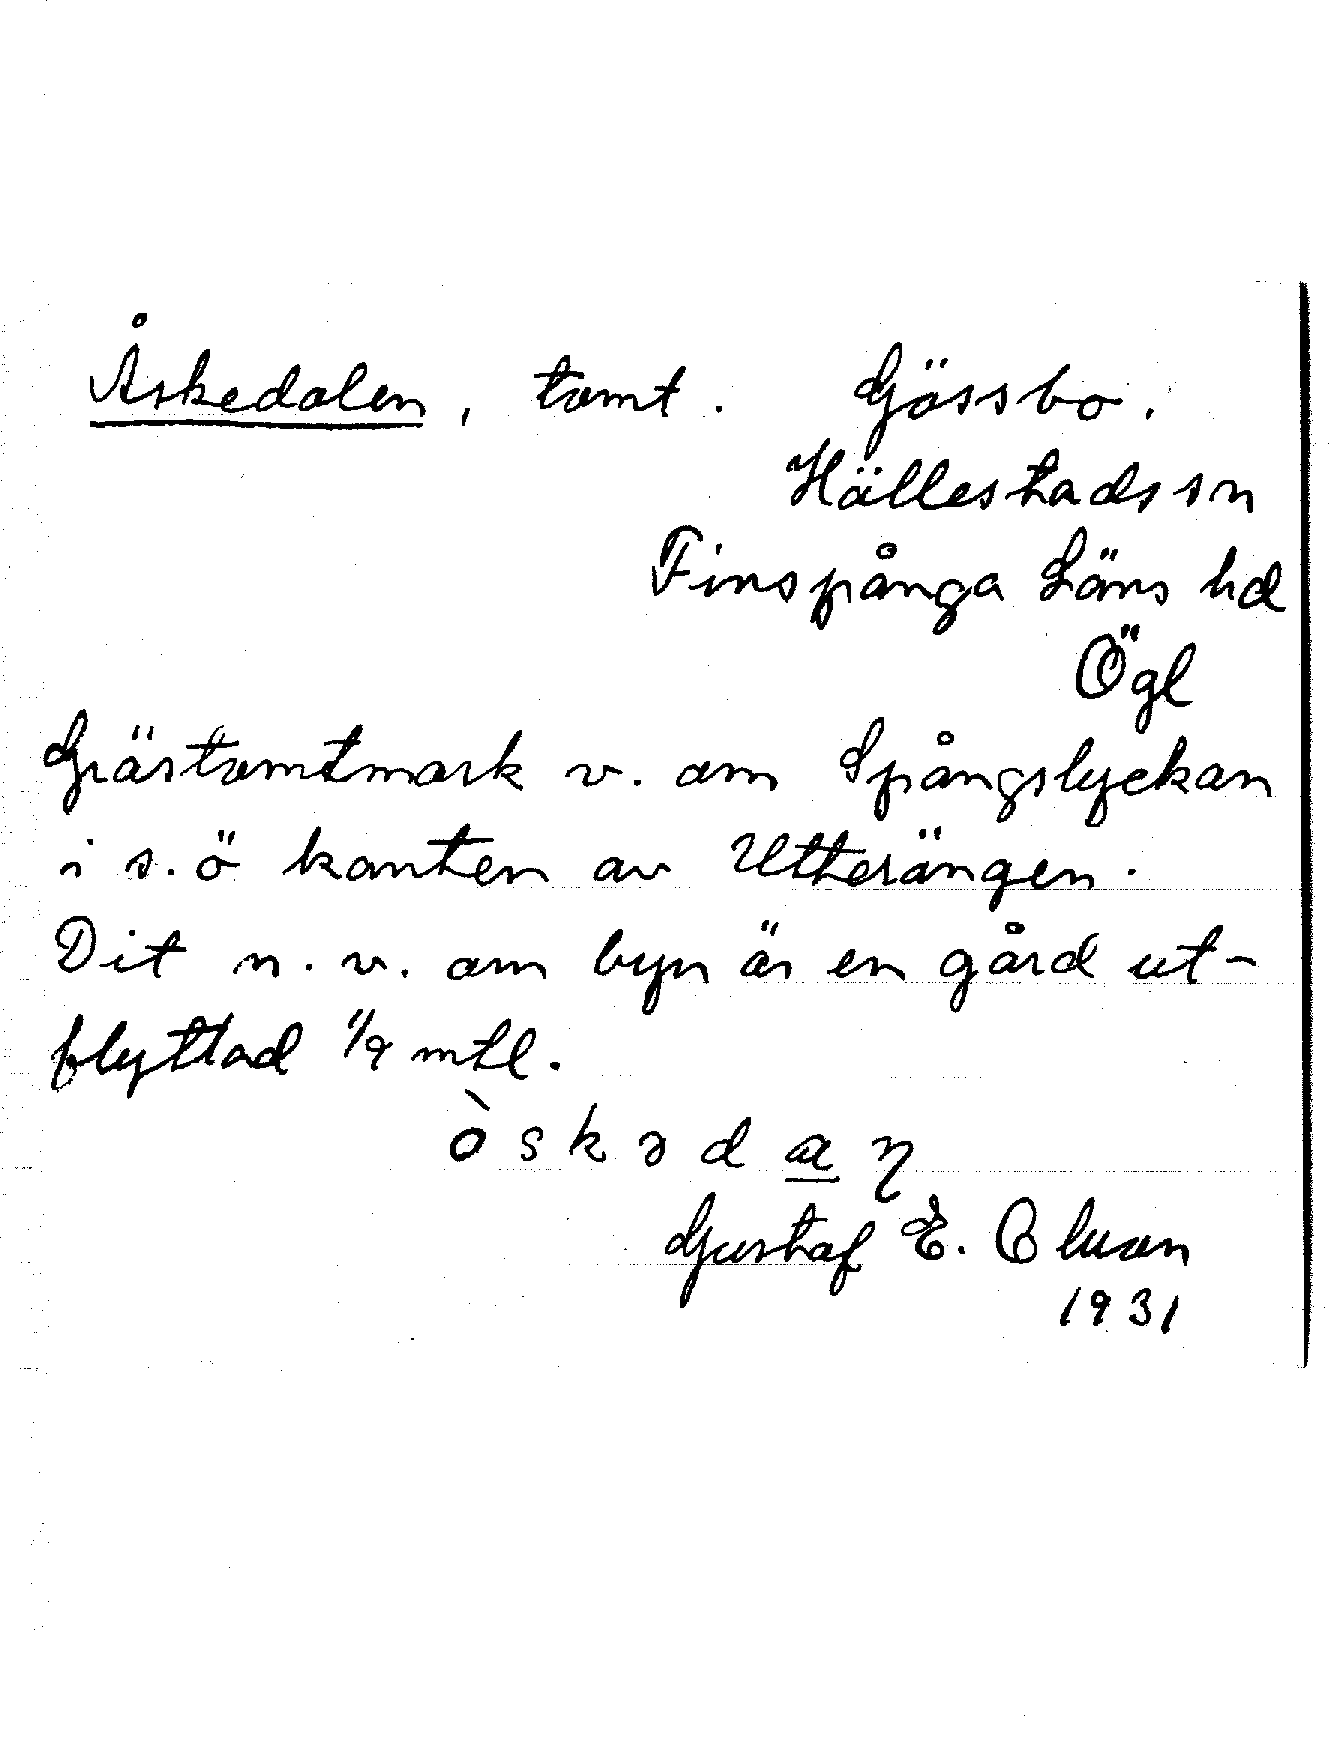 Åskedalen, tomt. Gössbo.
Hällestads sn
Finspånga Läns hd
Ögl
Grästomtmark v. om Spångslyckan
i s.ö kanten av Utterängen.
Dit n.v. om byn är en gård ut-
flyttad 1/9 mtl.
ò s k ə d a n
Gustaf E.
1931